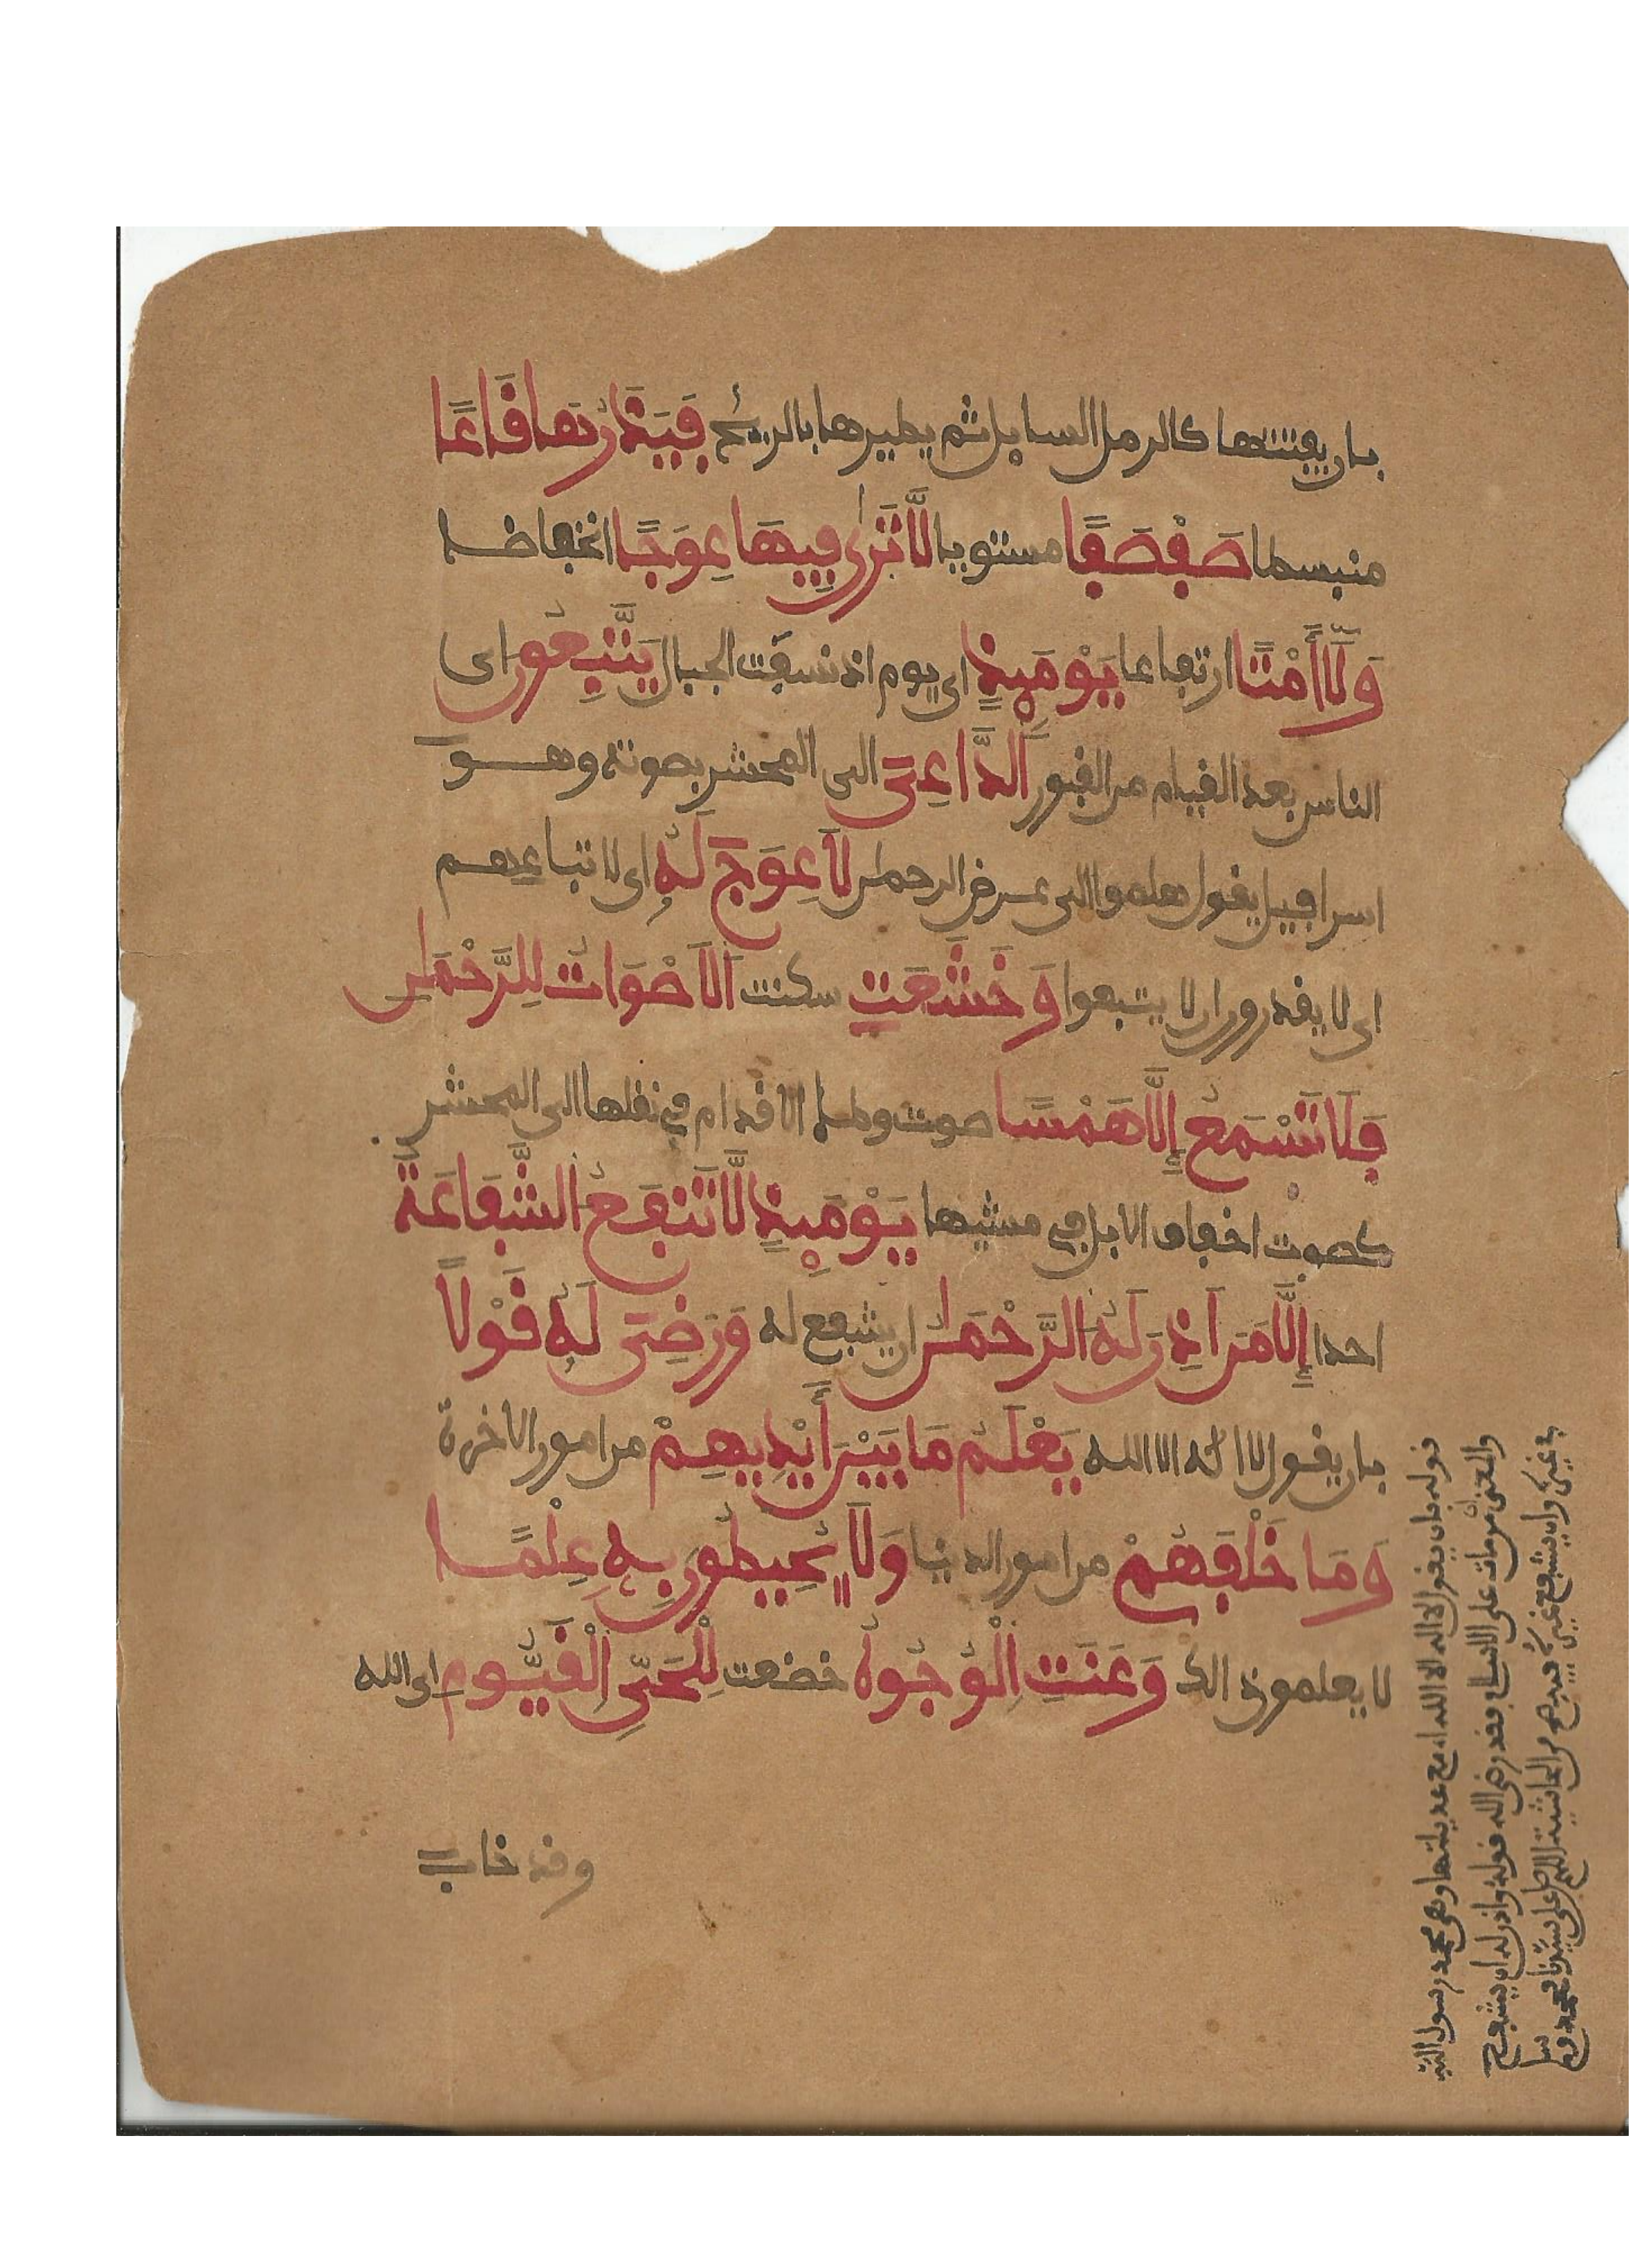 بان يفتتها كالرمل السايل ثم يطيرها بالريح فَيَذَرُهَا قَاعًا
منبسطا صَفْصَفًا مستويا لَّا تَرَىٰ فِيهَا عِوَجًا انخفاضا
وَلَا أَمْتًا ارتفاعا يَوْمَئِذٍ اي يوم اذ نسفت الجبال يَتَّبِعُونَ اي
الناس بعد القيام من القبور الدَّاعِيَ الى المحشر بصوته وهو
اسرافيل يقول هلموا الى عرض الرحمن لَا عِوَجَ لَهُ اي لاتباعهم
اي لا يقدرون ان لا يتبعوا وَخَشَعَتِ سكنت الْأَصْوَاتُ لِلرَّحْمَنِ
فَلَا تَسْمَعُ إِلَّا هَمْسًا صوت وطء الاقدام في نقلها الى المحشر
كصوت اخفاف الابل في مشيها يَوْمَئِذٍ لَّا تَنفَعُ الشَّفَاعَةُ
احدا إِلَّا مَنْ أَذِنَ لَهُ الرَّحْمَنُ ان يشفع له وَرَضِيَ لَهُ قَوْلًا
بان يقول لا اله الا الله يَعْلَمُ مَا بَيْنَ أَيْدِيهِمْ من امور الاخرة
وَمَا خَلْفَهُمْ من امور الدنيا وَلَا يُحِيطُونَ بِهِ عِلْمًا
لا يعلمون ذلك وَعَنَتِ الْوُجُوهُ خضعت لِلْحَيِّ الْقَيُّومِ اي الله
وقد خاب
قوله بان يقول لا اله الا الله اي مع عديلتها وهي محمد رسول الله
والمعنى ان من مات على الاسلام فقد رضي الله قوله واذن له ان يشفع
في غيره وان يشفع غيره فيه من الحاشية اللهم صل على سيدنا محمد وسلم